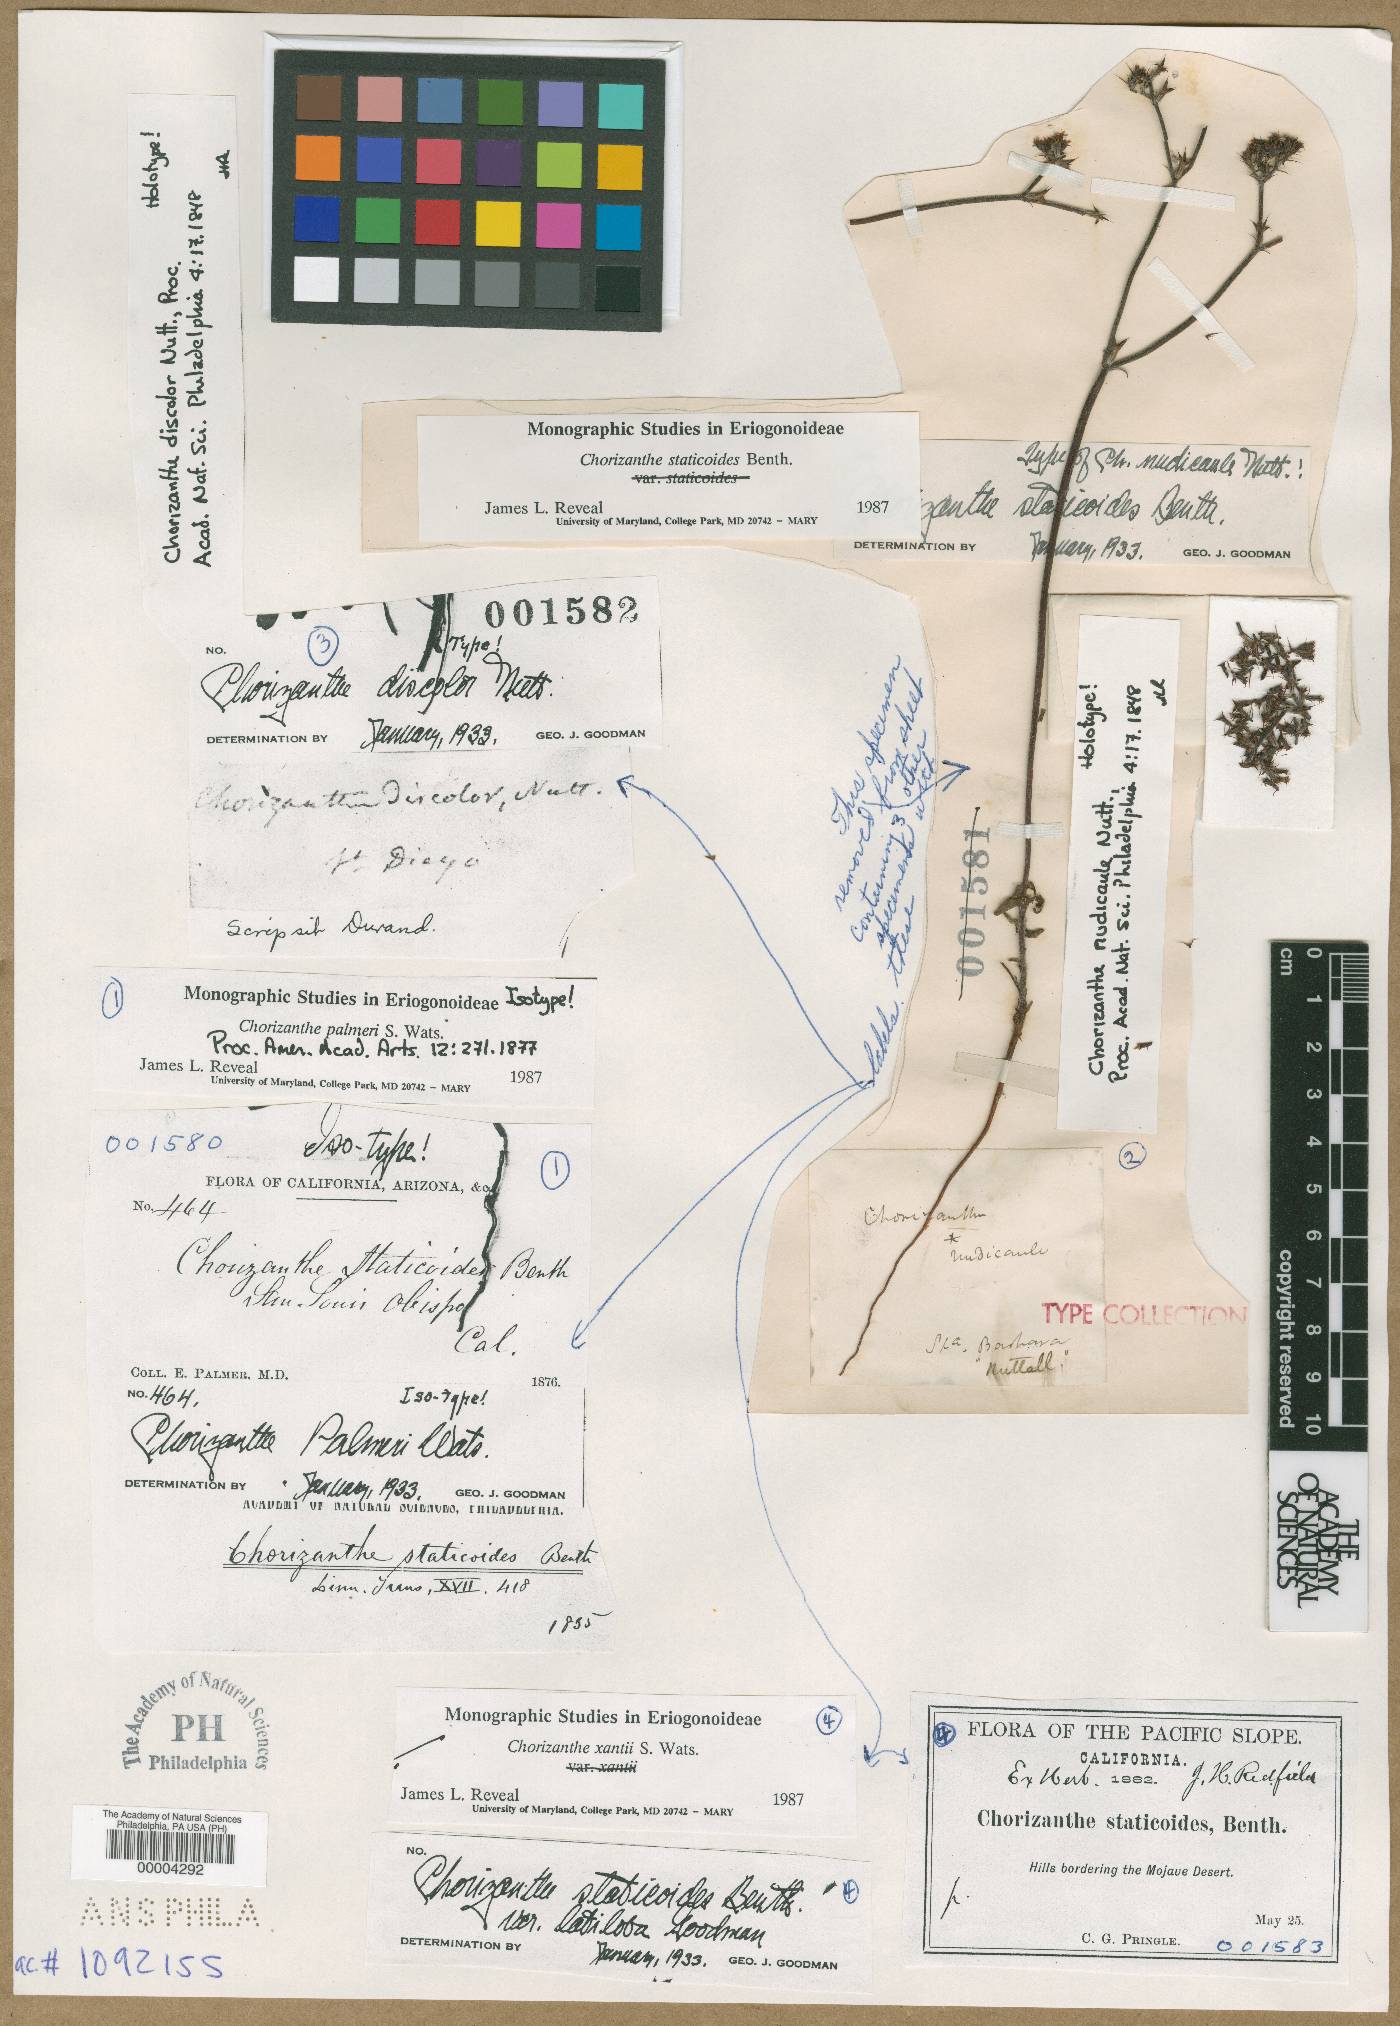 Chorizanthe discolor Nutt., Proc.
Acad. Nat. Sci. Philadelphia 4:17. 1848
Holotype!
JR
Monographic Studies in Eriogonoideae
Chorizanthe staticoides Benth.
var. staticoides
James L. Reveal 1987
University of Maryland, College Park, MD 20742 – MARY
Type of Ch. nudicaule Nutt.!
izanthe staticoides Benth.
January, 1933.
DETERMINATION BY GEO. J. GOODMAN
001582
NO. 3 Type!
Chorizanthe discolor Nutt.
January, 1933.
DETERMINATION BY GEO. J. GOODMAN
Chorizanthe Discolor, Nutt.
St Diego
scripsit Durand.
This specimen
removed from sheet
containing 3 other
specimens with
these
labels.
001581
Chorizanthe nudicaule Nutt.,
Proc. Acad. Nat. Sci. Philadelphia 4:17. 1848
Holotype!
JR
2
1
Monographic Studies in Eriogonoideae Isotype!
Chorizanthe palmeri S. Wats.
Proc. Amer. Acad. Arts. 12:271. 1877
James L. Reveal 1987
University of Maryland, College Park, MD 20742 – MARY
001580
Iso-type!
1
FLORA OF CALIFORNIA, ARIZONA, &c.
No. 464
Chorizanthe Staticoides Benth
San Louis Obispo
Cal.
COLL. E. PALMER, M.D. 1876.
NO. 464. Iso-type!
Chorizanthe Palmeri Wats.
January, 1933.
DETERMINATION BY GEO. J. GOODMAN
ACADEMY OF NATURAL SCIENCES, PHILADELPHIA.
Chorizanthe staticoides Benth
Linn. Trans, XVII. 418
1835
Chorizanthe
*
nudicaule
Sta. Barbara
"Nuttall."
TYPE COLLECTION
cm
0
1
2
3
4
5
6
7
8
9
10
copyright reserved
THE
ACADEMY
OF NATURAL
SCIENCES
The Academy of Natural Sciences
PH
Philadelphia
The Academy of Natural Sciences
Philadelphia, PA USA (PH)
00004292
ANSPHILA
ac.# 1092155
Monographic Studies in Eriogonoideae 4
Chorizanthe xantii S. Wats.
var. xantii
James L. Reveal 1987
University of Maryland, College Park, MD 20742 – MARY
NO.
Chorizanthe staticoides Benth.
4
var. latiloba Goodman
January, 1933.
DETERMINATION BY GEO. J. GOODMAN
4 FLORA OF THE PACIFIC SLOPE.
CALIFORNIA.
Ex Herb. 1882. J. H. Redfield
Chorizanthe staticoides, Benth.
Hills bordering the Mojave Desert.
May 25.
C. G. PRINGLE.
001583